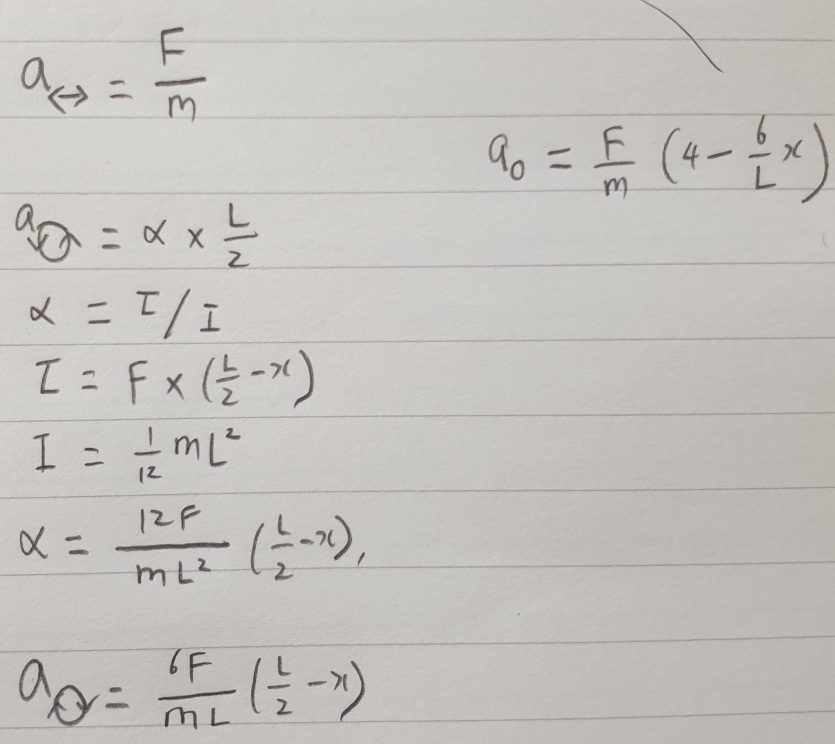 a↔ = F/m
a₀ = F/m (4 − 6/L x)
a↻ = α × L/2
α = τ/I
τ = F × (L/2 − x)
I = 1/12 mL²
α = 12F/mL² (L/2 − x),
a↻ = 6F/mL (L/2 − x)